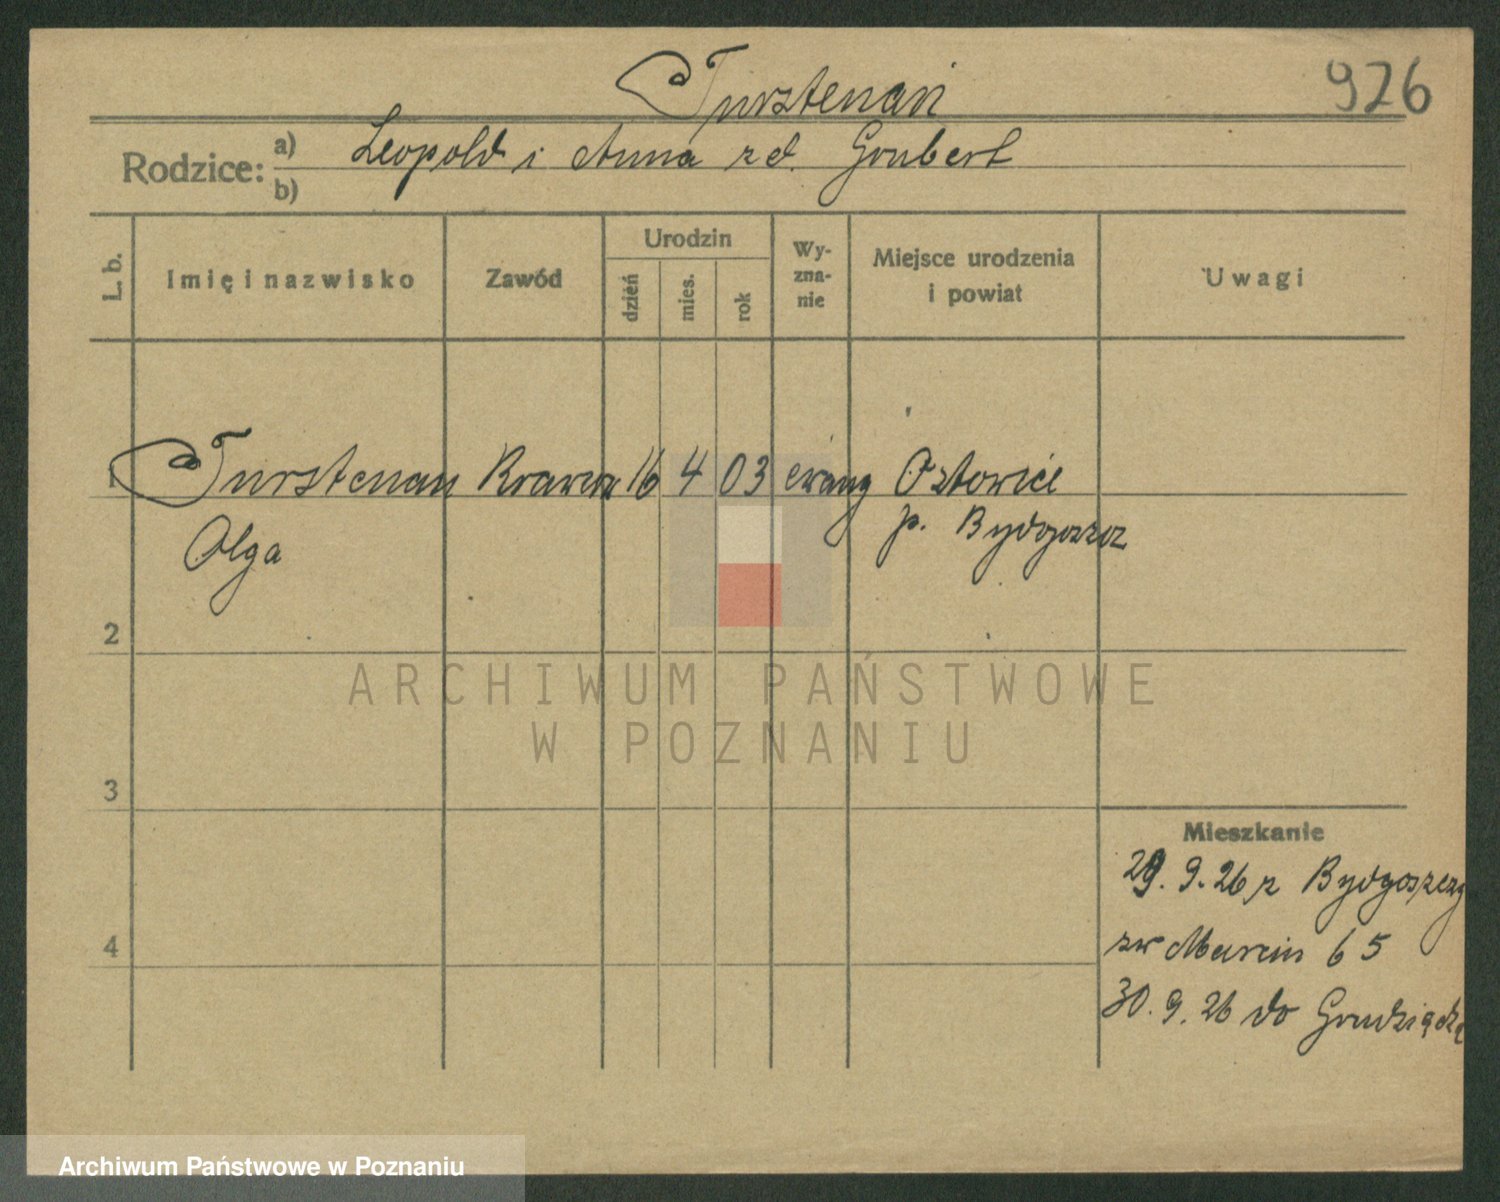 Furstenau
926
Rodzice:
a)
Leopold i Anna zd. Goubert
b)
L. b.
Imię i nazwisko
Zawód
Urodzin
dzień
mies.
rok
Wy-
zna-
nie
Miejsce urodzenia
i powiat
Uwagi
1
Furstenau
16 4 03 ewang
p. Bydgoszcz
Olga
2
ARCHIWUM PAŃSTWOWE
W POZNANIU
3
Mieszkanie
29. 9. 26 z Bydgoszczy
św Marcin 65
4
30. 9. 26 do Grudziądza
Archiwum Państwowe w Poznaniu